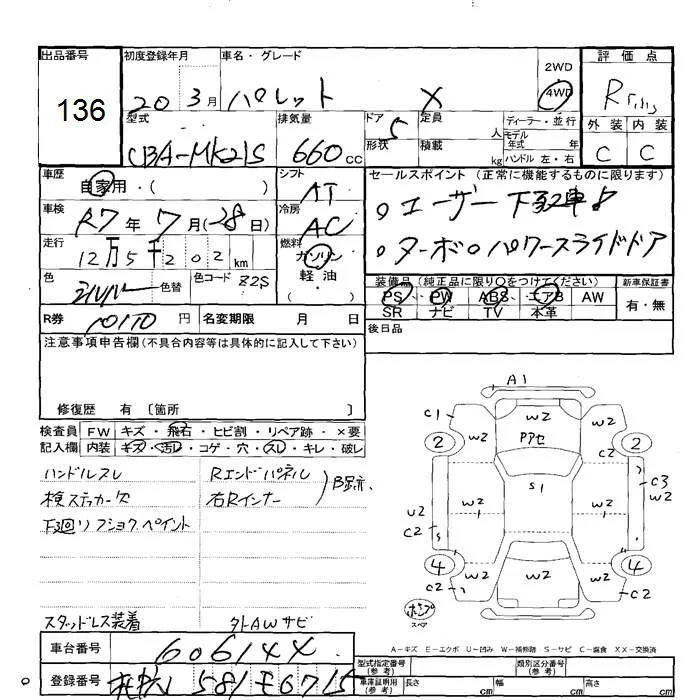 出品番号 136
初度登録年月 20 3月
車名・グレード パレット X
2WD 4WD
評価点 R
外装 内装
C C
型式 CBA-MK21S
排気量 660cc
ドア 5 形状
定員 人 積載 kg
ディーラー・並行
モデル年式 年
ハンドル 左・右
車歴 自家用・( )
シフト AT
セールスポイント (正常に機能するものに限ります)
。ユーザー下取車!
。ターボ。パワースライドドア
車検 R7年7月(-28日)
冷房 AC
走行 12万5千202km
燃料 ガソリン 軽・油
色 シルバー 色替 色コード Z2S
装備品 (純正品に限り○をつけてください)
新車保証書 有・無
PS PW ABS エアB AW
SR ナビ TV 本革
R券 10170円
名変期限 月 日
後日品
注意事項申告欄(不具合内容等は具体的に記入して下さい)
修復歴 有 〔箇所 〕
検査員記入欄
FW キズ・飛石・ヒビ割・リペア跡・×要
内装 キズ・汚レ・コゲ・穴・スレ・キレ・破レ
ハンドルスレ
検ステッカー欠
下廻リフショクペイント
スタッドレス装着
Rエンドパネル
右Rインナー
B跡
外AWサビ
A1
C1 W2 W2
2 W2 Pアセ W2 2
S1
C3
W2
U2
C2 W2 W2
4 W2 W2 W2 4
C2 C2
スペア
A-キズ E-エクボ U-凹み W-補修跡 S-サビ C-腐食 XX-交換済
車台番号 606144
登録番号 581 6715
型式指定番号(参考)
類別区分番号(参考)
車庫証明用(参考) 長さ cm 幅 cm 高さ cm